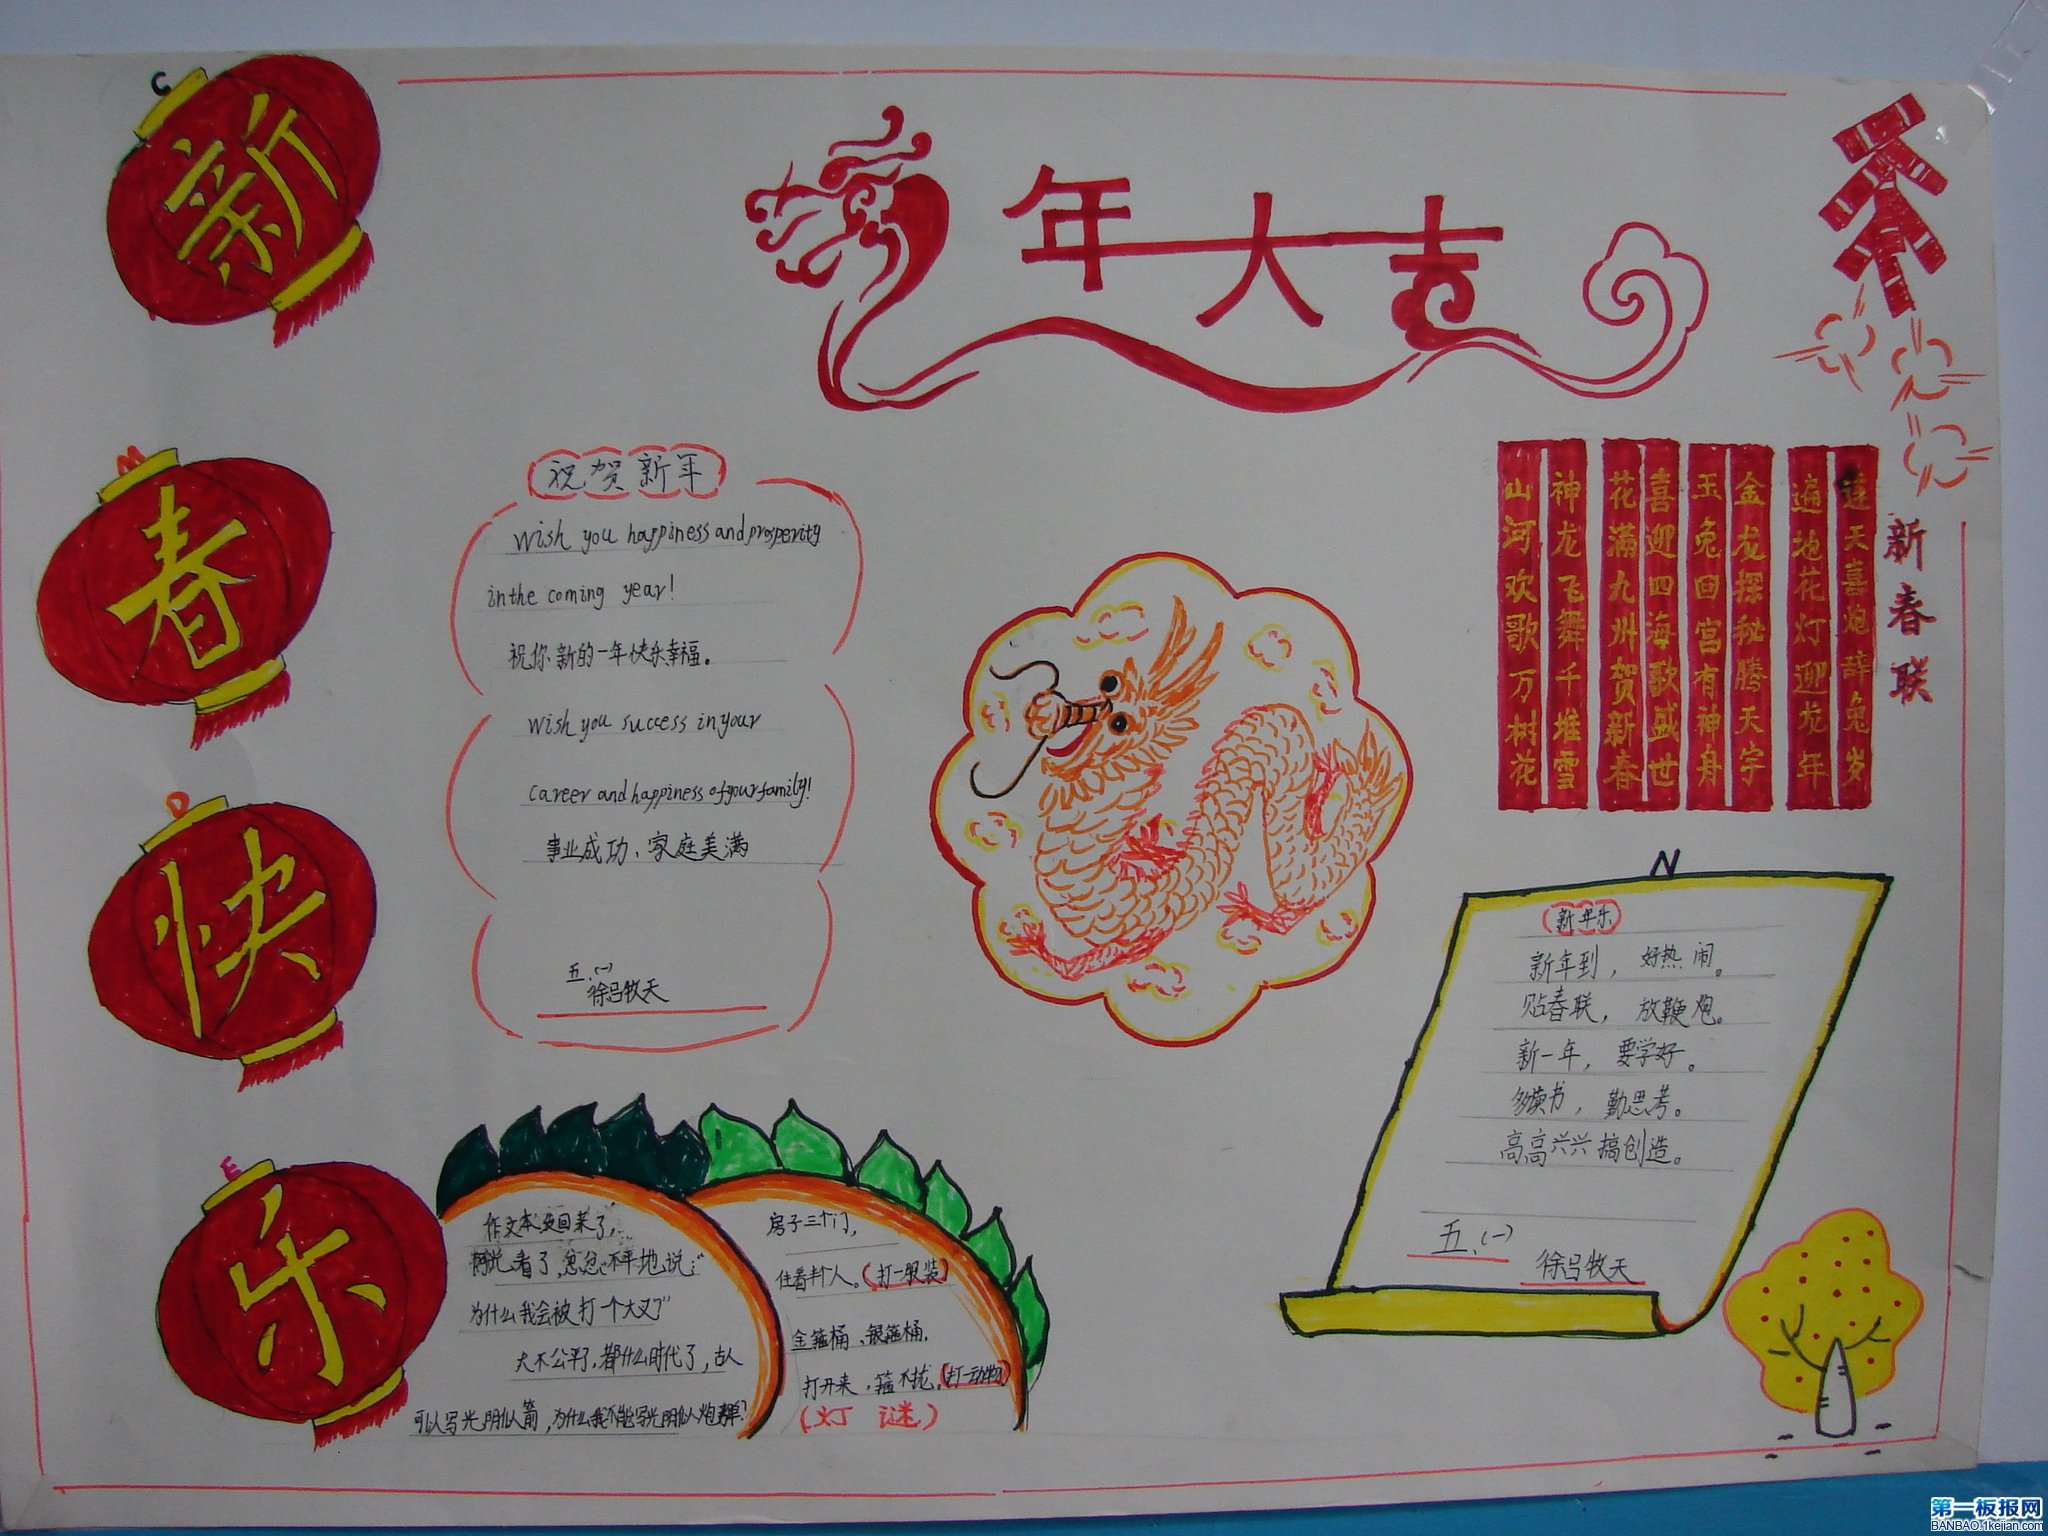 新
春
快
乐
年大吉
祝贺新年
Wish you happiness and prosperity
in the coming year!
祝你新的一年快乐幸福。
Wish you success in your
career and happiness of your family!
事业成功、家庭美满
五.(一)
徐吕牧天
神龙飞舞千堆雪
山河欢歌万树花
喜迎四海歌盛世
花满九州贺新春
金龙探秘腾天宇
玉兔回宫有神舟
连天喜炮辞兔岁
遍地花灯迎龙年
新春联
新年乐
新年到，好热闹。
贴春联，放鞭炮。
新一年，要学好。
多读书，勤思考。
高高兴兴搞创造。
五.(一)
徐吕牧天
作文本发回来了，
阿光看了，忿忿不平地说：“
为什么我会被打一个大叉”
大不公平了，都什么时代了，古人
可以写光阴似箭，为什么我不能写光阴似炮弹？
房子三个门，
住着半个人。(打一服装)
金箍桶、银箍桶，
打开来，箍不拢。(打一动物)
(灯 谜)
C
M
D
E
N
第一板报网
BANBAO.1kejian.com